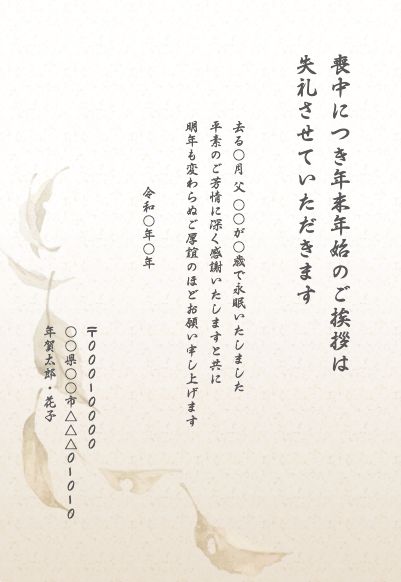 喪中につき年末年始のご挨拶は
失礼させていただきます
去る〇月 父 〇〇が〇歳で永眠いたしました
平素のご芳情に深く感謝いたしますと共に
明年も変わらぬご厚誼のほどお願い申し上げます
令和〇年〇年
〒000-0000
〇〇県〇〇市△△△0-0-0
年賀太郎・花子